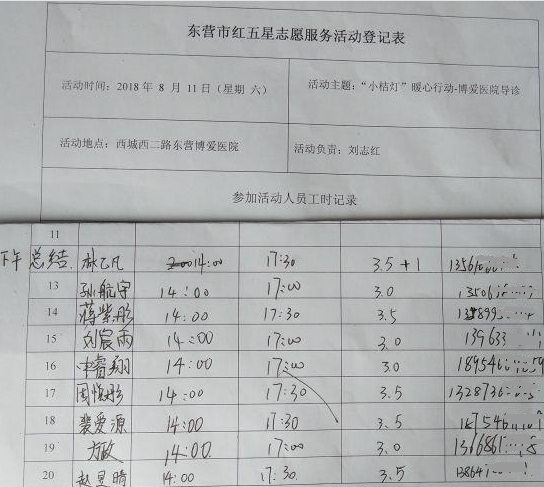 东营市红五星志愿服务活动登记表
活动时间：2018 年 8 月 11 日（星期 六） 活动主题：“小桔灯”暖心行动-博爱医院导诊
活动地点：西城西二路东营博爱医院 活动负责：刘志红
参加活动人员工时记录
11
下午 总结 林乙凡 14:00 17:30 3.5 +1
13 孙航宇 14:00 17:00 3.0
14 蒋紫彤 14:00 17:30 3.5
15 刘宸雨 14:00 17:00 3.0 139633
16 睿翔 14:00 17:00 3.0 189546
17 周 彤 14:00 17:30 3.5 1328736
18 裴爱源 14:00 17:30 3.5
19 方政 14:00 17:00 3.0
20 赵 晴 14:00 17:30 3.5 13864